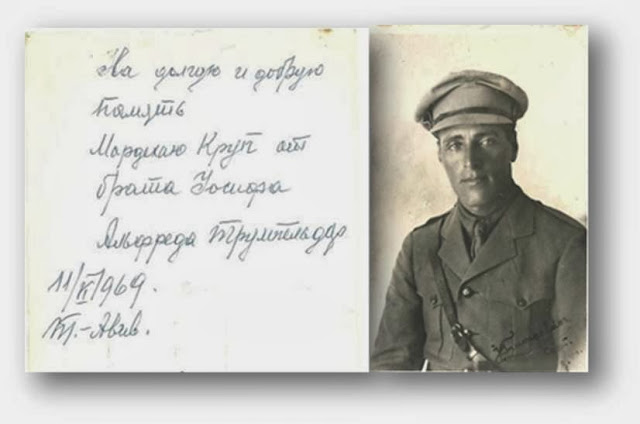 На долгую и добрую
память
Мордхаю Круп от
брата Иосифа
Альфреда Трумпельдор
11/ 1969.
Т.-Авив.